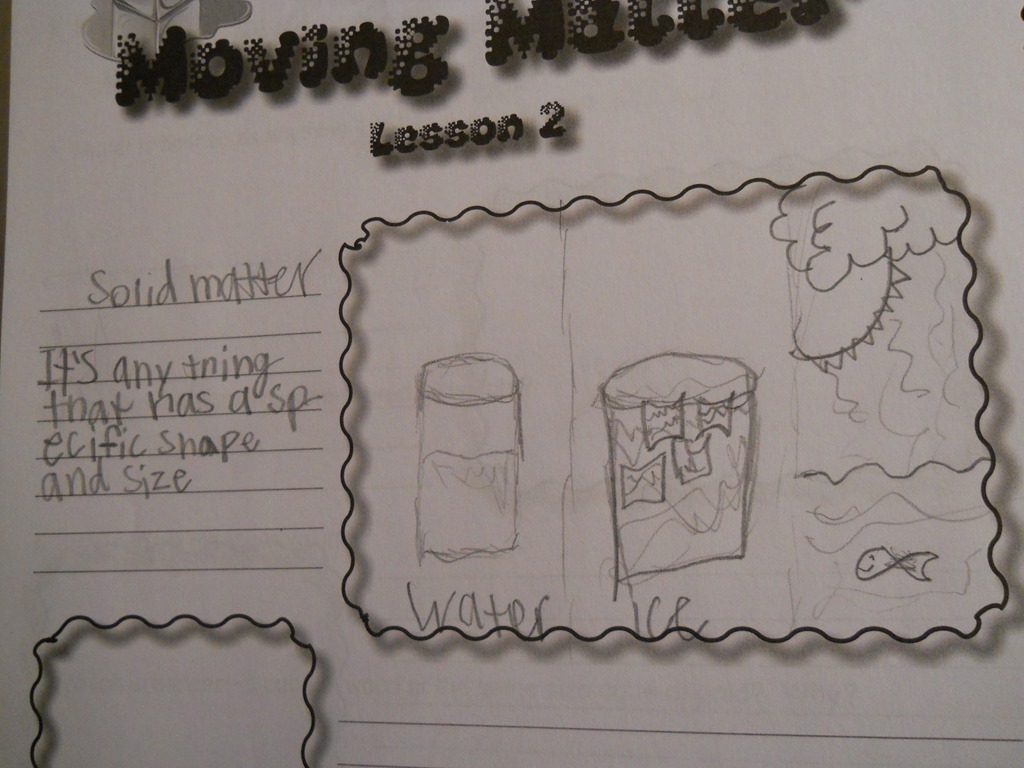 Moving Matter
Lesson 2
Solid matter
It's any thing
that has a sp
ecific shape
and size
Water
Ice